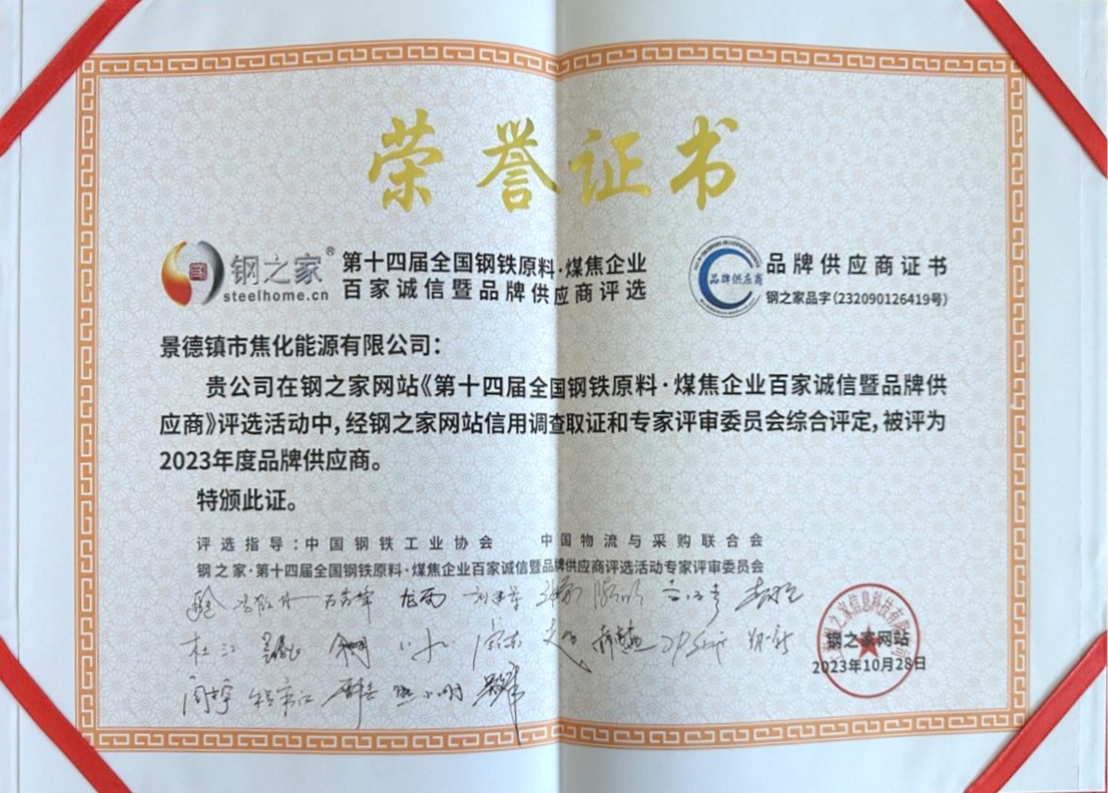 荣誉证书
钢之家®
steelhome.cn
第十四届全国钢铁原料·煤焦企业
百家诚信暨品牌供应商评选
品牌供应商
品牌供应商证书
钢之家品字(232090126419号)
景德镇市焦化能源有限公司:
贵公司在钢之家网站《第十四届全国钢铁原料·煤焦企业百家诚信暨品牌供
应商》评选活动中,经钢之家网站信用调查取证和专家评审委员会综合评定,被评为
2023年度品牌供应商。
特颁此证。
评选指导:中国钢铁工业协会 中国物流与采购联合会
钢之家·第十四届全国钢铁原料·煤焦企业百家诚信暨品牌供应商评选活动专家评审委员会
钢之家网站
2023年10月28日